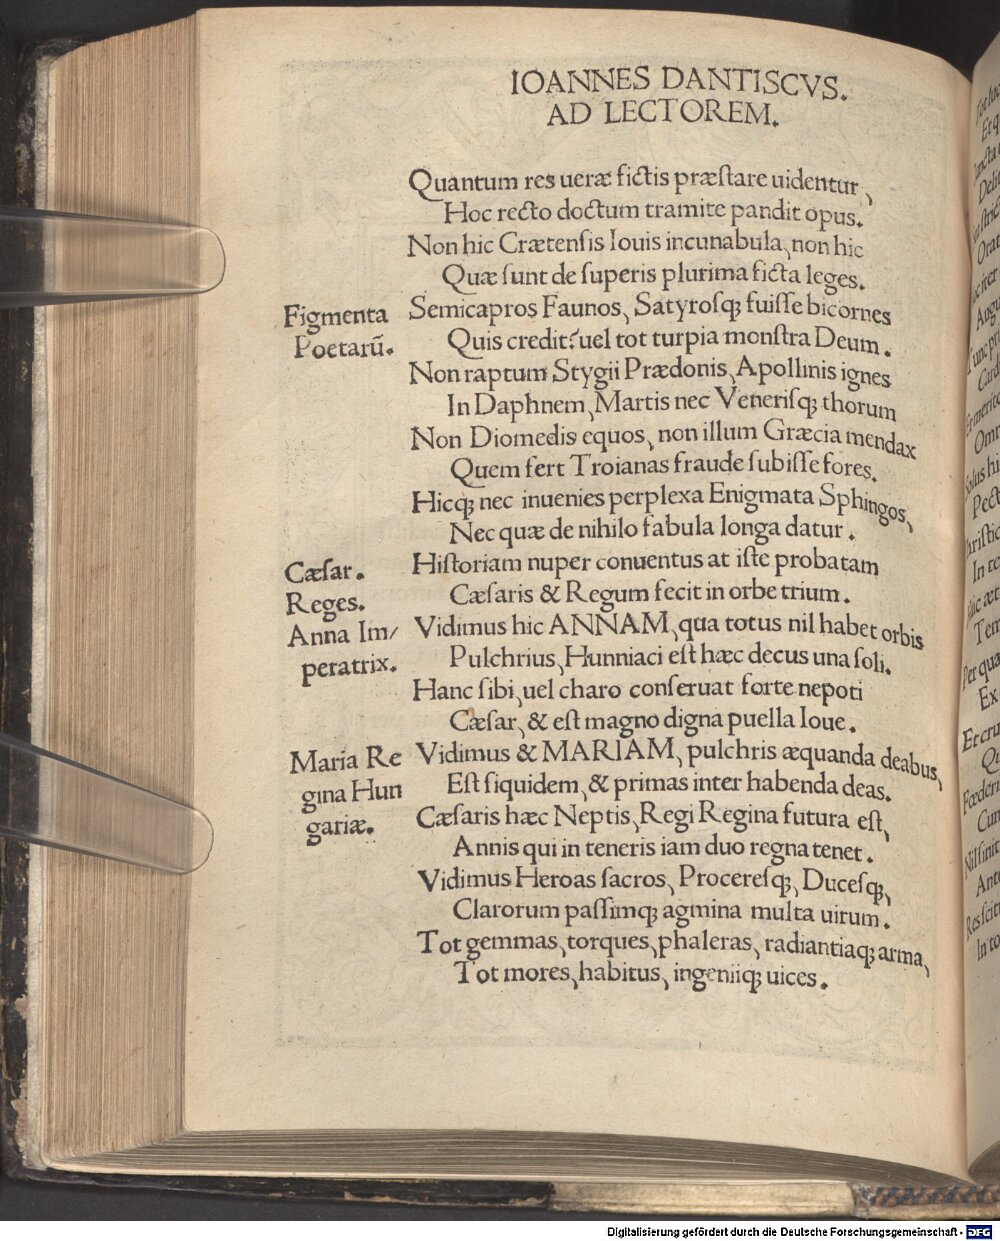 IOANNES DANTISCVS.
AD LECTOREM.
Quantum res ueræ fictis præstare uidentur,
Hoc recto doctum tramite pandit opus.
Non hic Crætenſis Iouis incunabula, non hic
Quæ ſunt de ſuperis plurima ficta leges.
Figmenta
Poetarū.
Semicapros Faunos, Satyroſqꝫ fuiſſe bicornes
Quis credit? uel tot turpia monſtra Deum.
Non raptum Stygii Prædonis, Apollinis ignes
In Daphnem, Martis nec Veneriſqꝫ thorum
Non Diomedis equos, non illum Græcia mendax
Quem fert Troianas fraude ſubiſſe fores.
Hicqꝫ nec inuenies perplexa Enigmata Sphingos,
Nec quæ de nihilo fabula longa datur.
Cæſar.
Reges.
Anna Im/
peratrix.
Hiſtoriam nuper conuentus at iſte probatam
Cæſaris & Regum fecit in orbe trium.
Vidimus hic ANNAM, qua totus nil habet orbis
Pulchrius, Hunniaci eſt hæc decus una ſoli.
Hanc ſibi, uel charo conſeruat forte nepoti
Cæſar, & eſt magno digna puella Ioue.
Maria Re
gina Hun
gariæ.
Vidimus & MARIAM, pulchris æquanda deabus,
Eſt ſiquidem, & primas inter habenda deas.
Cæſaris hæc Neptis, Regi Regina futura eſt,
Annis qui in teneris iam duo regna tenet.
Vidimus Heroas ſacros, Procereſqꝫ, Duceſqꝫ,
Clarorum paſſimqꝫ agmina multa uirum.
Tot gemmas, torques, phaleras, radiantiaqꝫ arma,
Tot mores, habitus, ingeniiqꝫ uices.
Digitalisierung gefördert durch die Deutsche Forschungsgemeinschaft - DFG